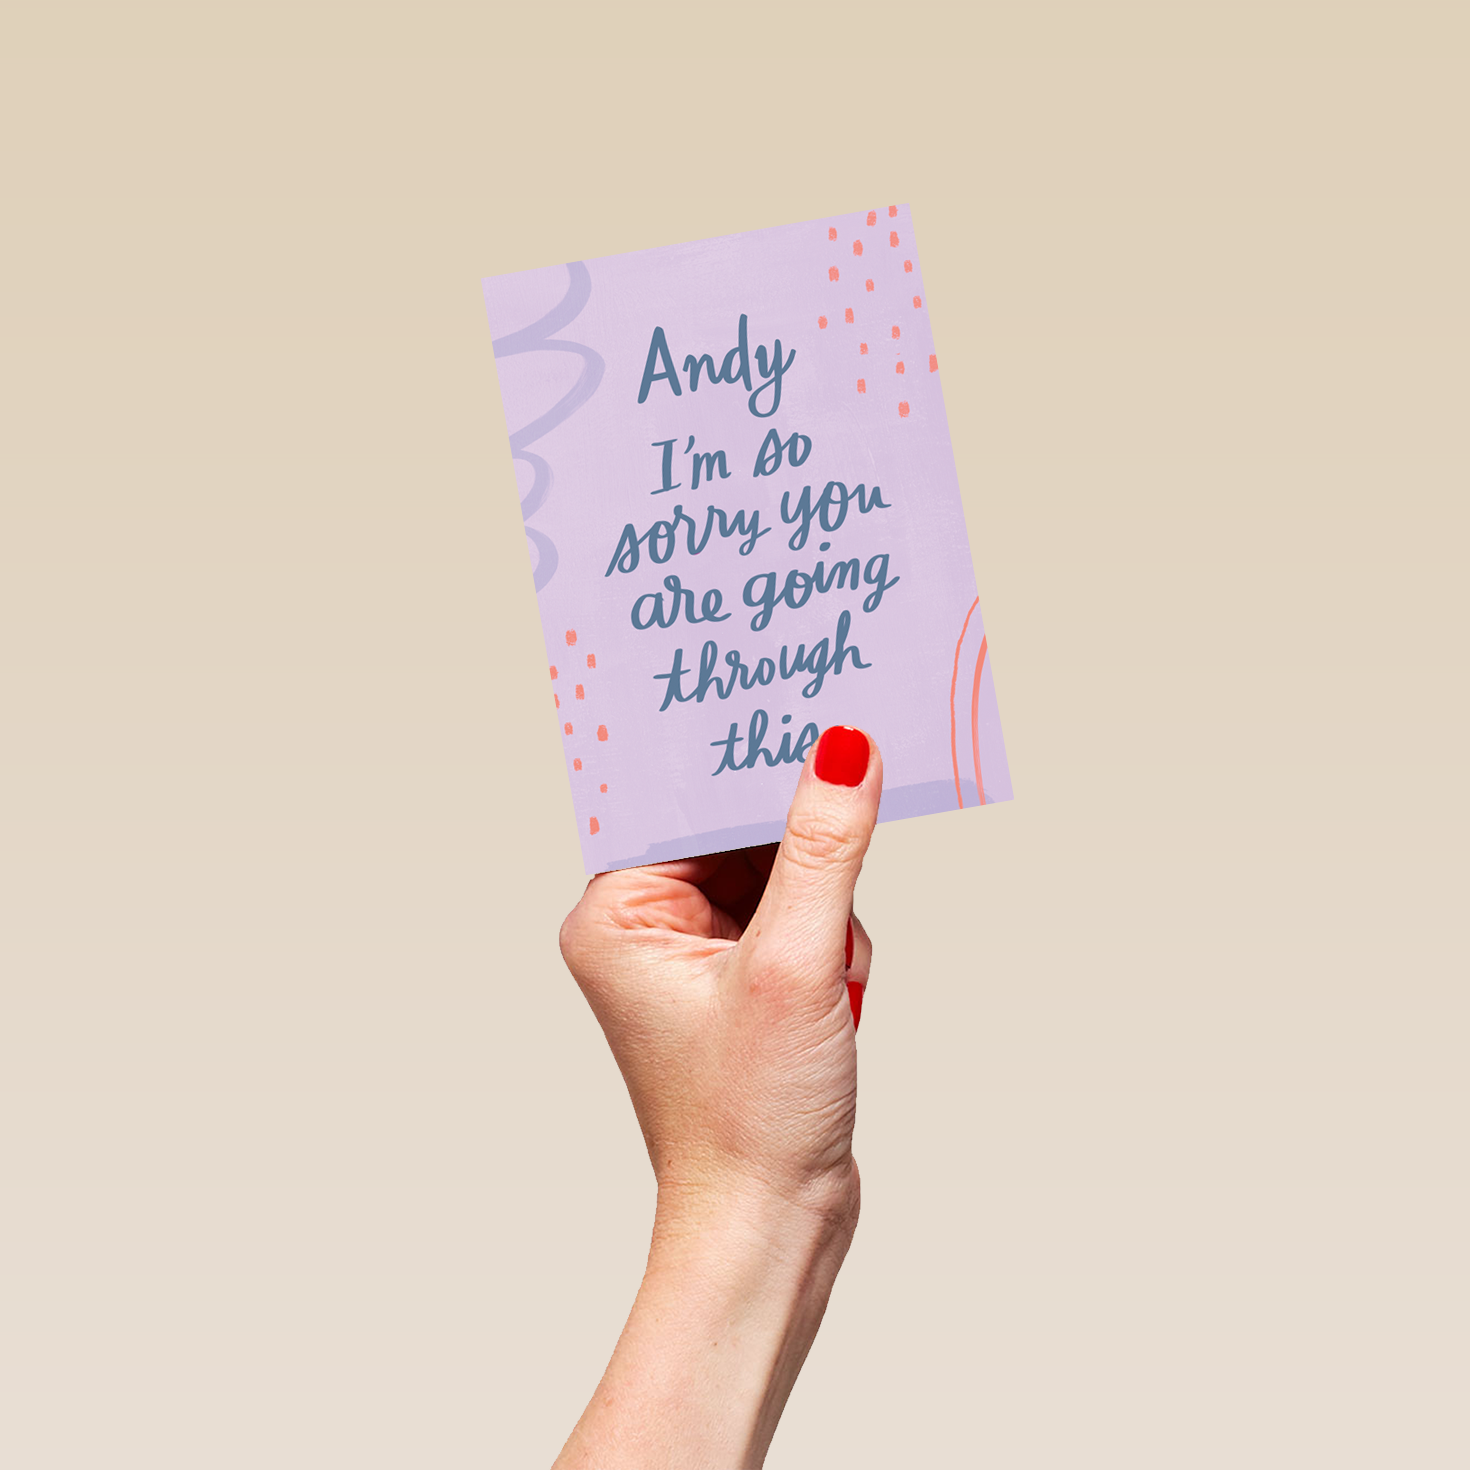 Andy
I'm so
sorry you
are going
through
this